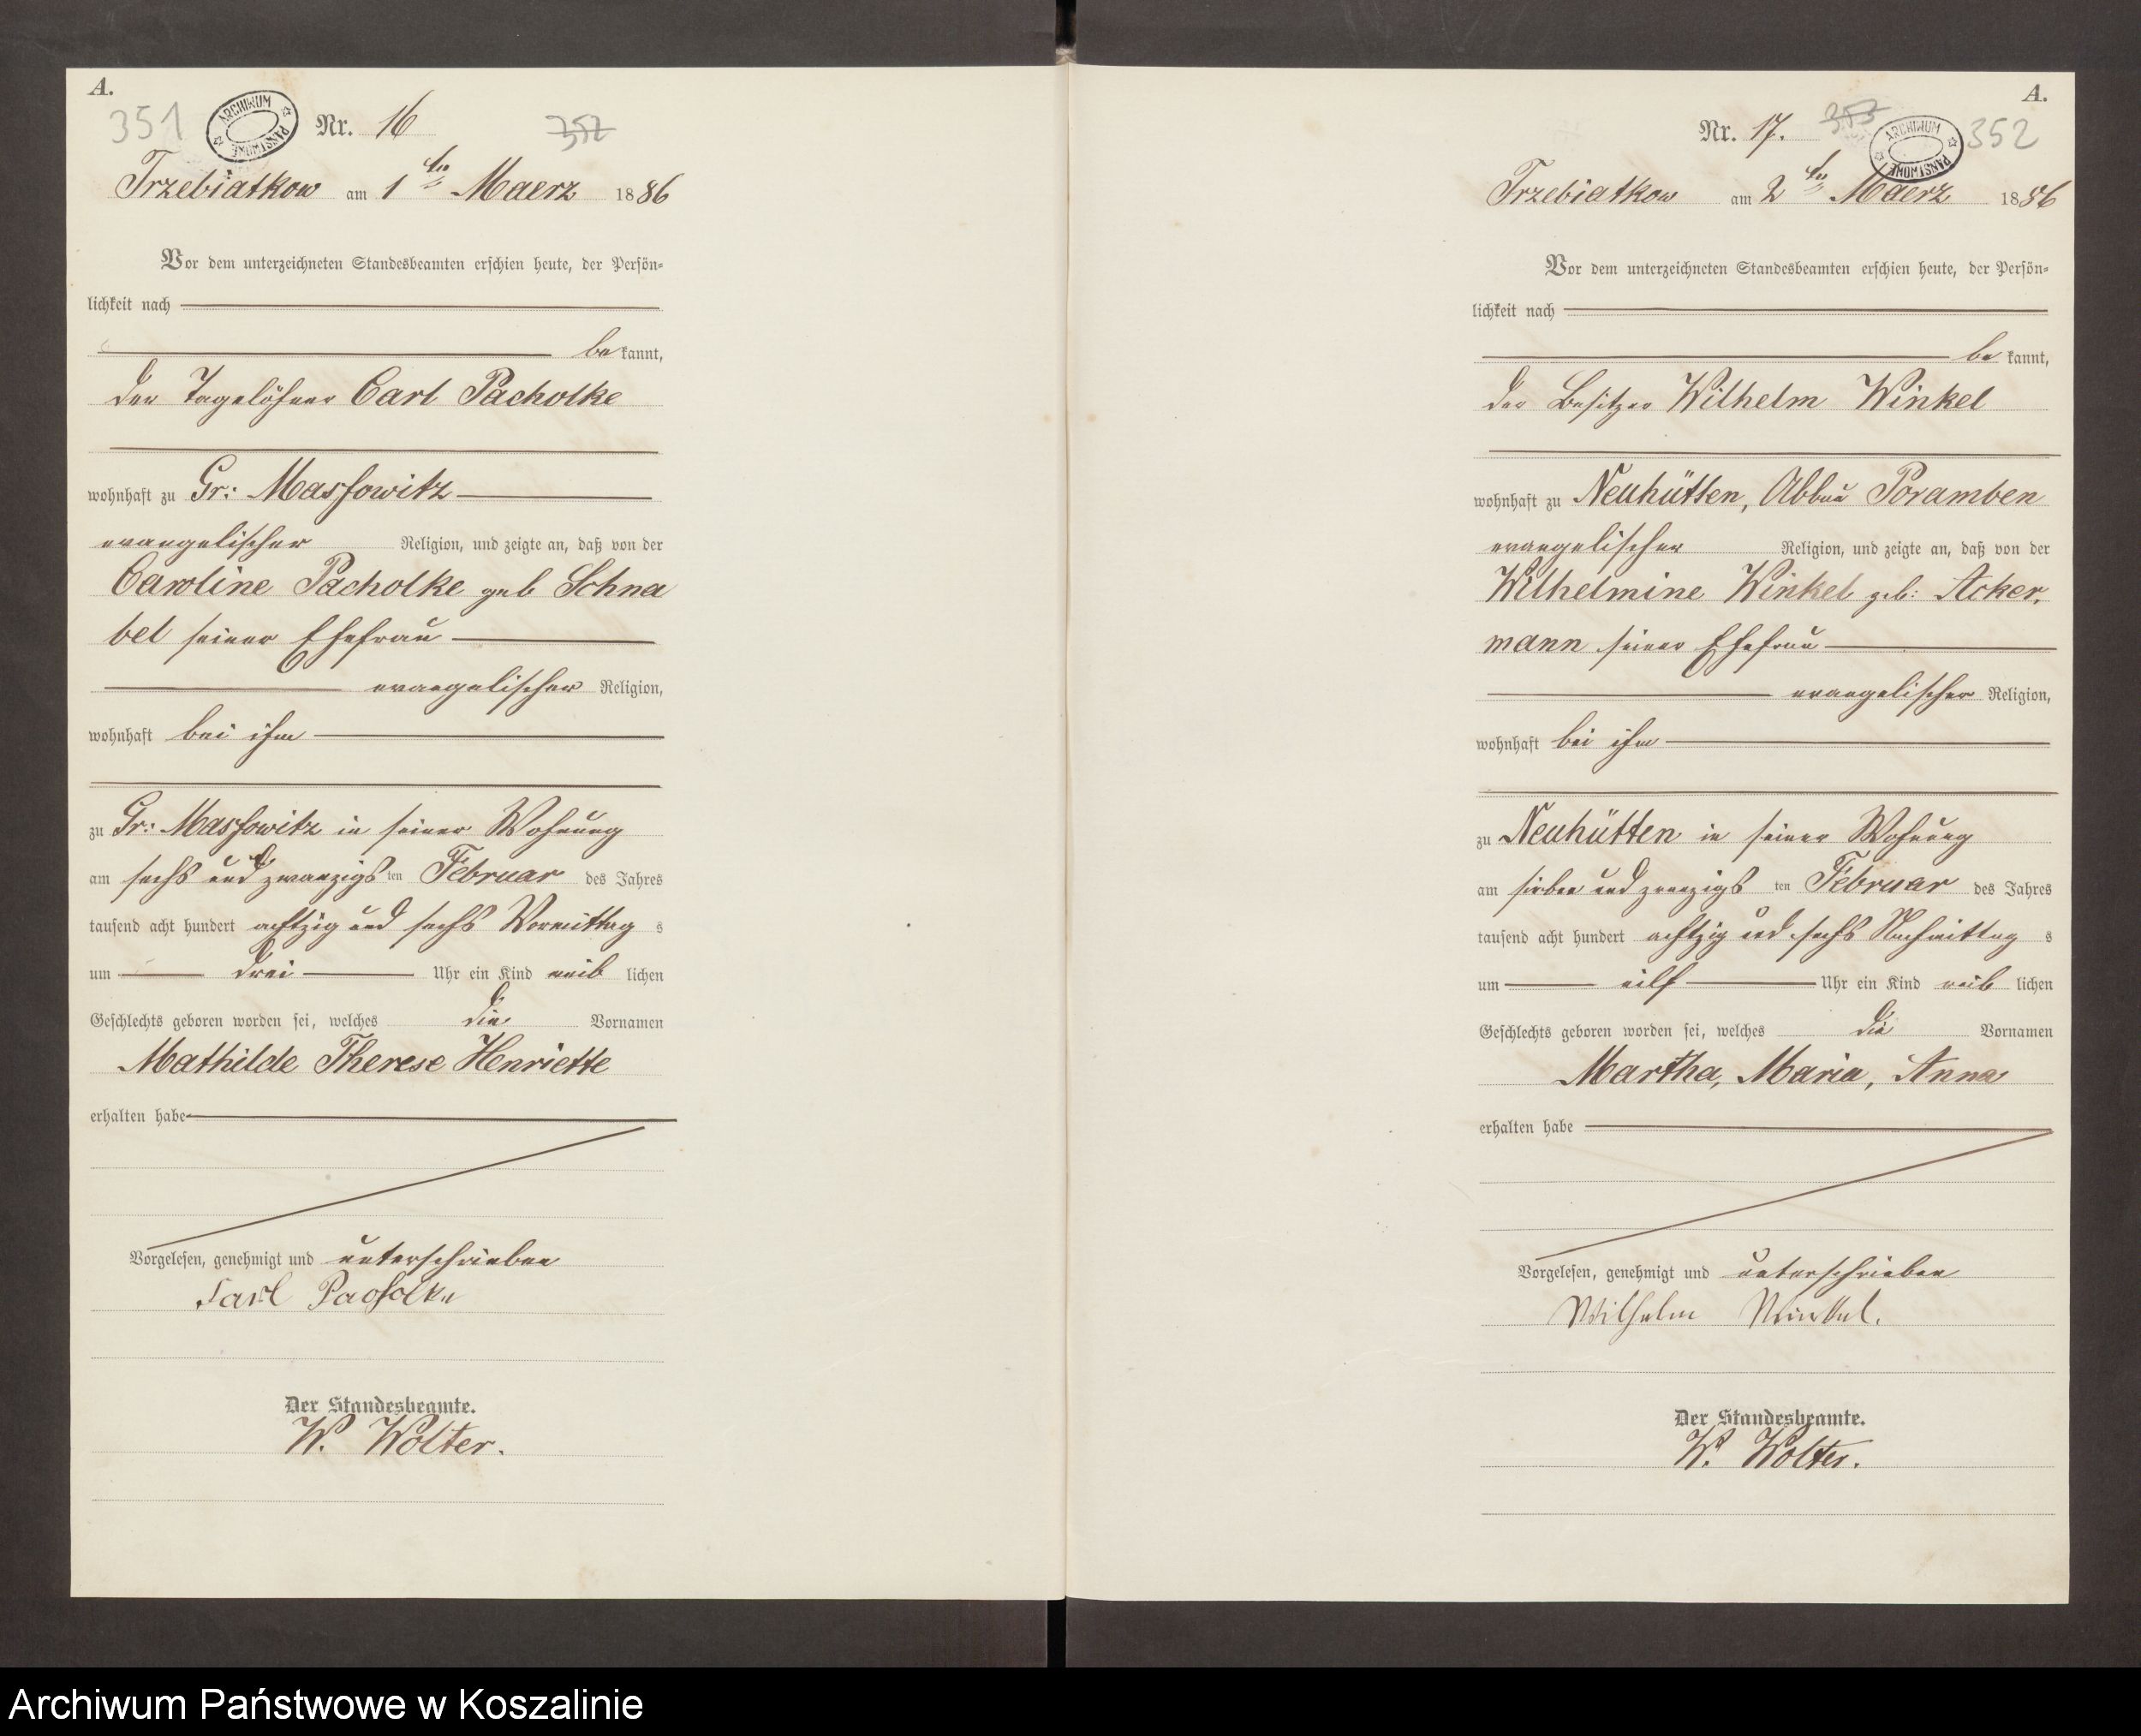 A.
351
ARCHIWUM PAŃSTWOWE
Nr. 16
352
Trzebiatkow am 1ten Maerz 1886
Vor dem unterzeichneten Standesbeamten erschien heute, der Persön-
lichkeit nach
be kannt,
der Tagelöhner Carl Pacholke
wohnhaft zu Gr: Massowitz
evangelischer Religion, und zeigte an, daß von der
Caroline Pacholke geb Schna
bel seiner Ehefrau
evangelischer Religion,
wohnhaft bei ihm
zu Gr: Massowitz in seiner Wohnung
am sechs und zwanzigs ten Februar des Jahres
tausend acht hundert achtzig und sechs Vormittag s
um drei Uhr ein Kind weib lichen
Geschlechts geboren worden sei, welches die Vornamen
Mathilde Therese Henriette
erhalten habe
Vorgelesen, genehmigt und unterschrieben
Carl Pacholke
Der Standesbeamte.
W. Wolter.
A.
Nr. 17.
353
ARCHIWUM PAŃSTWOWE
352
Trzebiatkow am 2ten Maerz 1886
Vor dem unterzeichneten Standesbeamten erschien heute, der Persön-
lichkeit nach
be kannt,
der Besitzer Wilhelm Winkel
wohnhaft zu Neuhütten, Abbau Poramben
evangelischer Religion, und zeigte an, daß von der
Wilhelmine Winkel geb: Acker,
mann seiner Ehefrau
evangelischer Religion,
wohnhaft bei ihm
zu Neuhütten in seiner Wohnung
am sieben und zwanzigs ten Februar des Jahres
tausend acht hundert achtzig und sechs Nachmittag s
um eilf Uhr ein Kind weib lichen
Geschlechts geboren worden sei, welches die Vornamen
Martha, Maria, Anna
erhalten habe
Vorgelesen, genehmigt und unterschrieben
Wilhelm Winkel.
Der Standesbeamte.
W. Wolter.
Archiwum Państwowe w Koszalinie